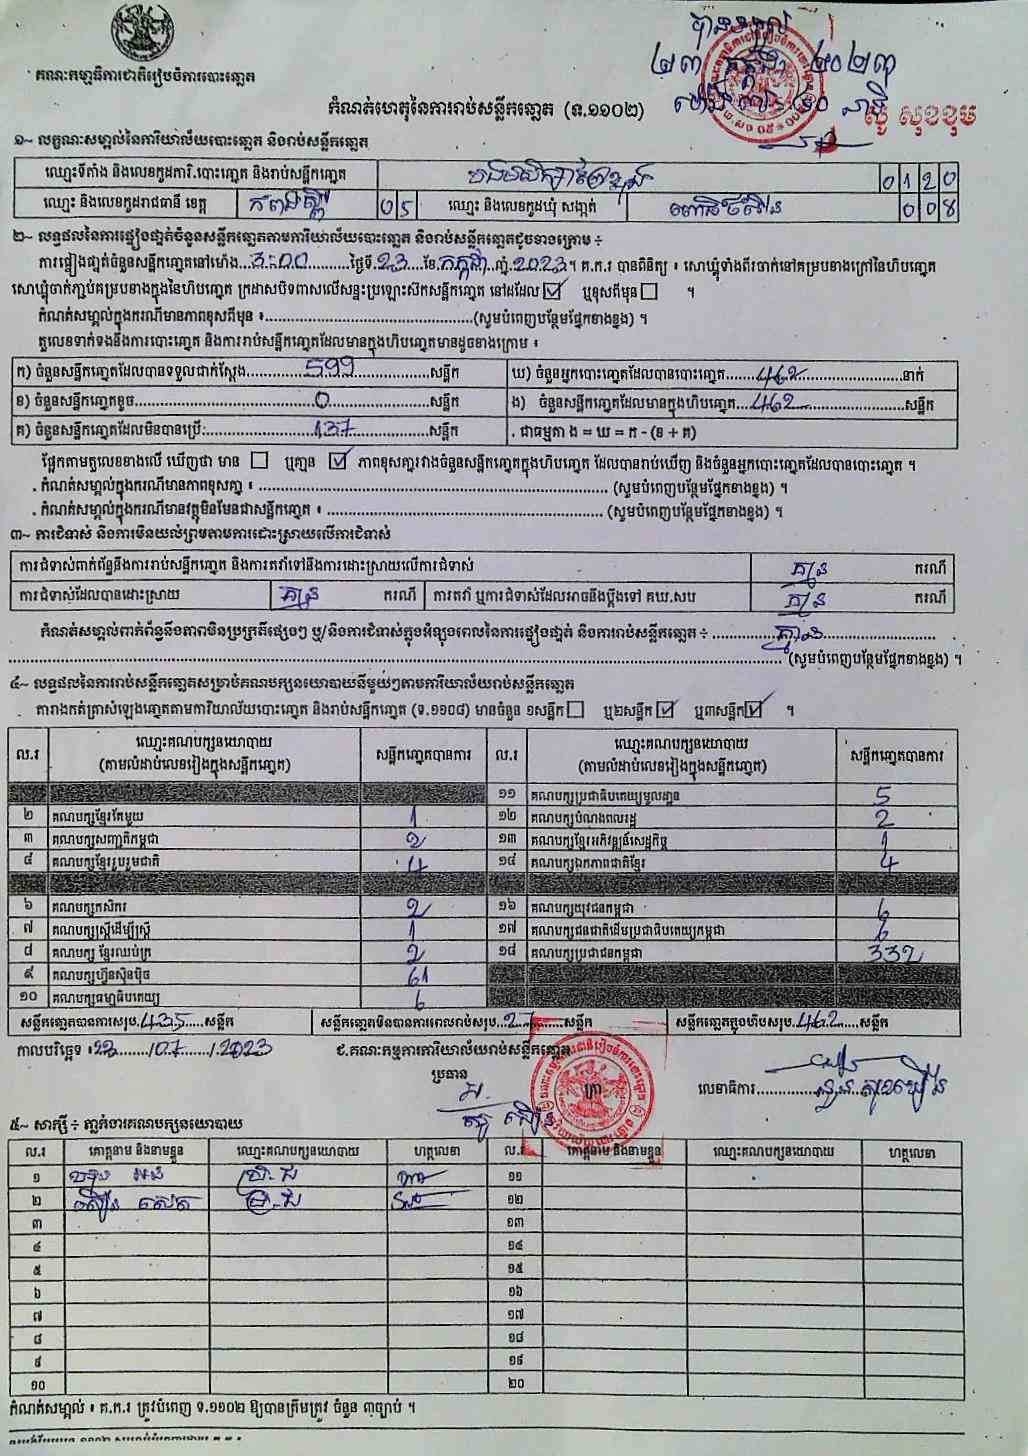 គណៈកម្មាធិការជាតិរៀបចំការបោះឆ្នោត
បានទទួល
២៣ កក្កដា ២០២៣
កំណត់ហេតុនៃការរាប់សន្លឹកឆ្នោត (ទ.១១០២)
សូ សុខខុម
១~ លក្ខណៈសម្គាល់នៃការិយាល័យបោះឆ្នោត និងរាប់សន្លឹកឆ្នោត
ឈ្មោះទីតាំង និងលេខកូដការិ.បោះឆ្នោត និងរាប់សន្លឹកឆ្នោត 0120
ឈ្មោះ និងលេខកូដរាជធានី ខេត្ត កំពង់ស្ពឺ 05 ឈ្មោះ និងលេខកូដឃុំ សង្កាត់ 008
២~ លទ្ធផលនៃការផ្ទៀងផ្ទាត់ចំនួនសន្លឹកឆ្នោតតាមការិយាល័យបោះឆ្នោត និងរាប់សន្លឹកឆ្នោតដូចខាងក្រោម ÷
ការផ្ទៀងផ្ទាត់ចំនួនសន្លឹកឆ្នោតនៅម៉ោង...3:00...ថ្ងៃទី.23...ខែ.កក្កដា..ឆ្នាំ.2023។ គ.ក.រ បានពិនិត្យ ៖ សោឃ្មុំទាំងពីរចាក់នៅគម្របខាងក្រៅនៃហិបឆ្នោត
សោឃ្មុំចាក់ភ្ជាប់គម្របខាងក្នុងនៃហិបឆ្នោត ក្រដាសបិទពាសលើសន្ទះប្រឡោះស៊កសន្លឹកឆ្នោត នៅដដែល ☑ ឬខុសពីមុន ☐ ។
កំណត់សម្គាល់ក្នុងករណីមានភាពខុសពីមុន ៖..............(សូមបំពេញបន្ថែមផ្នែកខាងខ្នង) ។
តួលេខទាក់ទងនឹងការបោះឆ្នោត និងការរាប់សន្លឹកឆ្នោតដែលមានក្នុងហិបឆ្នោតមានដូចខាងក្រោម ៖
ក) ចំនួនសន្លឹកឆ្នោតដែលបានទទួលជាក់ស្ដែង...599...សន្លឹក ឃ) ចំនួនអ្នកបោះឆ្នោតដែលបានបោះឆ្នោត...462...នាក់
ខ) ចំនួនសន្លឹកឆ្នោតខូច...0...សន្លឹក ង) ចំនួនសន្លឹកឆ្នោតដែលមានក្នុងហិបឆ្នោត...462...សន្លឹក
គ) ចំនួនសន្លឹកឆ្នោតដែលមិនបានប្រើ:...137...សន្លឹក . ជាធម្មតា ង = ឃ = ក - (ខ + គ)
ផ្អែកតាមតួលេខខាងលើ ឃើញថា មាន ☐ ឬគ្មាន ☑ ភាពខុសគ្នារវាងចំនួនសន្លឹកឆ្នោតក្នុងហិបឆ្នោត ដែលបានរាប់ឃើញ និងចំនួនអ្នកបោះឆ្នោតដែលបានបោះឆ្នោត ។
. កំណត់សម្គាល់ក្នុងករណីមានភាពខុសគ្នា ៖ .............. (សូមបំពេញបន្ថែមផ្នែកខាងខ្នង) ។
. កំណត់សម្គាល់ក្នុងករណីមានវត្ថុមិនមែនជាសន្លឹកឆ្នោត ៖ .............. (សូមបំពេញបន្ថែមផ្នែកខាងខ្នង) ។
៣~ ការជំទាស់ និងការមិនយល់ព្រមតាមការដោះស្រាយលើការជំទាស់
ការជំទាស់ពាក់ព័ន្ធនឹងការរាប់សន្លឹកឆ្នោត និងការតវ៉ាទៅនឹងការដោះស្រាយលើការជំទាស់ គ្មាន ករណី
ការជំទាស់ដែលបានដោះស្រាយ គ្មាន ករណី ការតវ៉ា ឬការជំទាស់ដែលអាចនឹងប្ដឹងទៅ គឃ.សប គ្មាន ករណី
កំណត់សម្គាល់ពាក់ព័ន្ធនឹងភាពមិនប្រក្រតីផ្សេងៗ ឬ/និងការជំទាស់ក្នុងអំឡុងពេលនៃការផ្ទៀងផ្ទាត់ និងការរាប់សន្លឹកឆ្នោត ÷ ......គ្មាន......
.............. (សូមបំពេញបន្ថែមផ្នែកខាងខ្នង) ។
៤~ លទ្ធផលនៃការរាប់សន្លឹកឆ្នោតសម្រាប់គណបក្សនយោបាយនីមួយៗតាមការិយាល័យរាប់សន្លឹកឆ្នោត
តារាងកត់ត្រាសំឡេងឆ្នោតតាមការិយាល័យបោះឆ្នោត និងរាប់សន្លឹកឆ្នោត (ទ.១១០៨) មានចំនួន ១សន្លឹក ☐ ឬ២សន្លឹក ☑ ឬ៣សន្លឹក ☑ ។
ល.រ ឈ្មោះគណបក្សនយោបាយ (តាមលំដាប់លេខរៀងក្នុងសន្លឹកឆ្នោត) សន្លឹកឆ្នោតបានការ ល.រ ឈ្មោះគណបក្សនយោបាយ (តាមលំដាប់លេខរៀងក្នុងសន្លឹកឆ្នោត) សន្លឹកឆ្នោតបានការ
១១ គណបក្សប្រជាធិបតេយ្យមូលដ្ឋាន 5
២ គណបក្សខ្មែរតែមួយ 1 ១២ គណបក្សបំណងពលរដ្ឋ 2
៣ គណបក្សសញ្ជាតិកម្ពុជា 2 ១៣ គណបក្សខ្មែរអភិវឌ្ឍន៍សេដ្ឋកិច្ច 1
៤ គណបក្សខ្មែររួបរួមជាតិ 4 ១៤ គណបក្សឯកភាពជាតិខ្មែរ 4
៦ គណបក្សកសិករ 2 ១៦ គណបក្សយុវជនកម្ពុជា 6
៧ គណបក្សស្ត្រីដើម្បីស្ត្រី 1 ១៧ គណបក្សជនជាតិដើមប្រជាធិបតេយ្យកម្ពុជា 6
៨ គណបក្ស ខ្មែរឈប់ក្រ 2 ១៨ គណបក្សប្រជាជនកម្ពុជា 332
៩ គណបក្សហ្វ៊ុនស៊ិនប៉ិច 61
១០ គណបក្សធម្មាធិបតេយ្យ 6
សន្លឹកឆ្នោតបានការសរុប.435.....សន្លឹក សន្លឹកឆ្នោតមិនបានការពេលរាប់សរុប..27.....សន្លឹក សន្លឹកឆ្នោតក្នុងហិបសរុប.462.....សន្លឹក
កាលបរិច្ឆេទ ៖23....../07....../.2023 ជ.គណៈកម្មការការិយាល័យរាប់សន្លឹកឆ្នោត
ប្រធាន
លេខាធិការ
៥~ សាក្សី ÷ ភ្នាក់ងារគណបក្សនយោបាយ
ល.រ គោត្តនាម និងនាមខ្លួន ឈ្មោះគណបក្សនយោបាយ ហត្ថលេខា ល.រ គោត្តនាម និងនាមខ្លួន ឈ្មោះគណបក្សនយោបាយ ហត្ថលេខា
១ ១១
២ ១២
៣ ១៣
៤ ១៤
៥ ១៥
៦ ១៦
៧ ១៧
៨ ១៨
៩ ១៩
១០ ២០
កំណត់សម្គាល់ ៖ គ.ក.រ ត្រូវបំពេញ ទ.១១០២ ឱ្យបានត្រឹមត្រូវ ចំនួន ៣ច្បាប់ ។